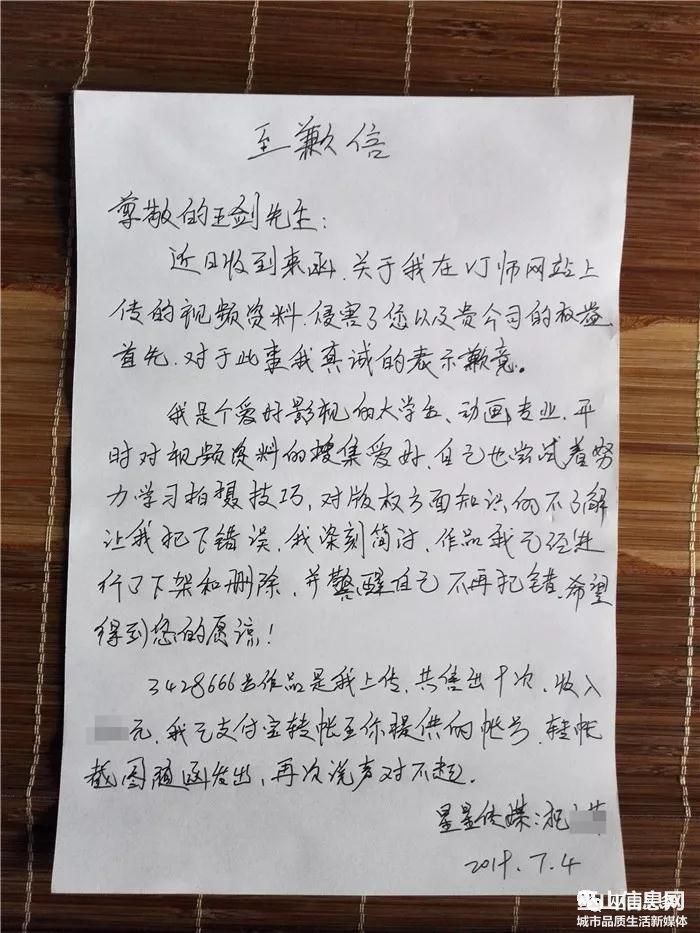 至歉信
尊敬的王剑先生：
近日收到来函，关于我在VJ师网站上
传的视频资料，侵害了您以及贵公司的权益
首先，对于此事我真诚的表示歉意。
我是个爱好影视的大学生、动画专业，平
时对视频资料的搜集爱好，自己也尝试着努
力学习拍摄技巧，对版权方面知识的不了解
让我犯下错误，我深刻简讨，作品我已经进
行了下架和删除，并警醒自己不再犯错，希望
得到您的愿谅！
3428666号作品是我上传，共售出十次，收入
元，我已支付宝转帐至你提供的帐号，转帐
截图随函发出，再次说声对不起。
星星传媒：祝
2019.7.4
山信息网
城市品质生活新媒体